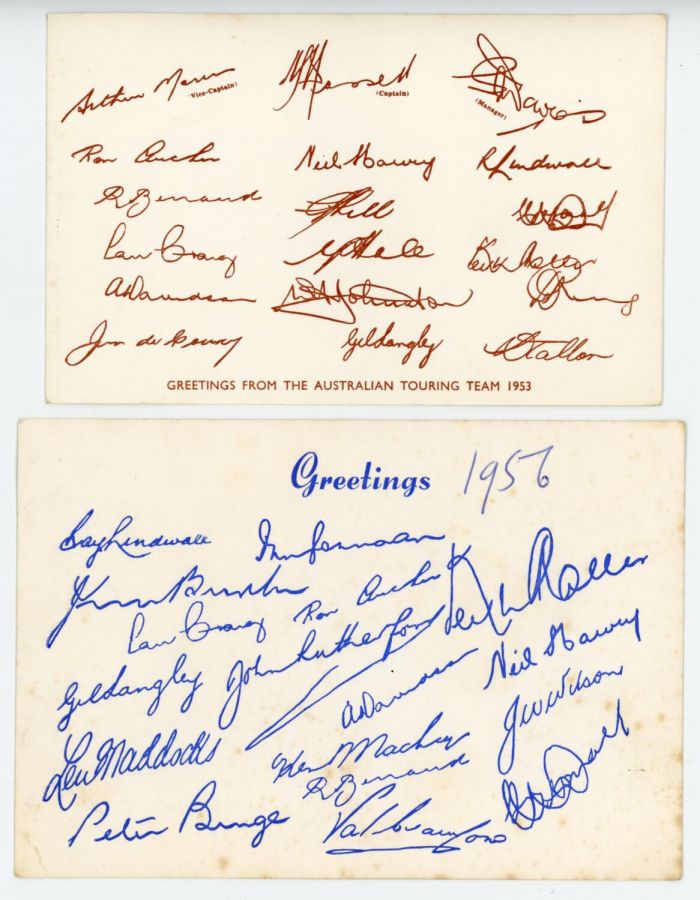 Arthur Morris (Vice-Captain) A L Hassett (Captain) G A Davies (Manager)
Ron Archer Neil Harvey R Lindwall
R Benaud J Hill
Ian Craig G Hole Keith Miller
A Davidson W A Johnston D Ring
Jim de Courcy Gil Langley D Tallon
GREETINGS FROM THE AUSTRALIAN TOURING TEAM 1953
Greetings 1956
Ray Lindwall Ian Johnson
Jim Burke
Ian Craig Ron Archer Keith Miller
Gil Langley John Rutherford Neil Harvey
A Davidson J W Wilson
Len Maddocks Ken Mackay
R Benaud
Peter Burge Pat Crawford